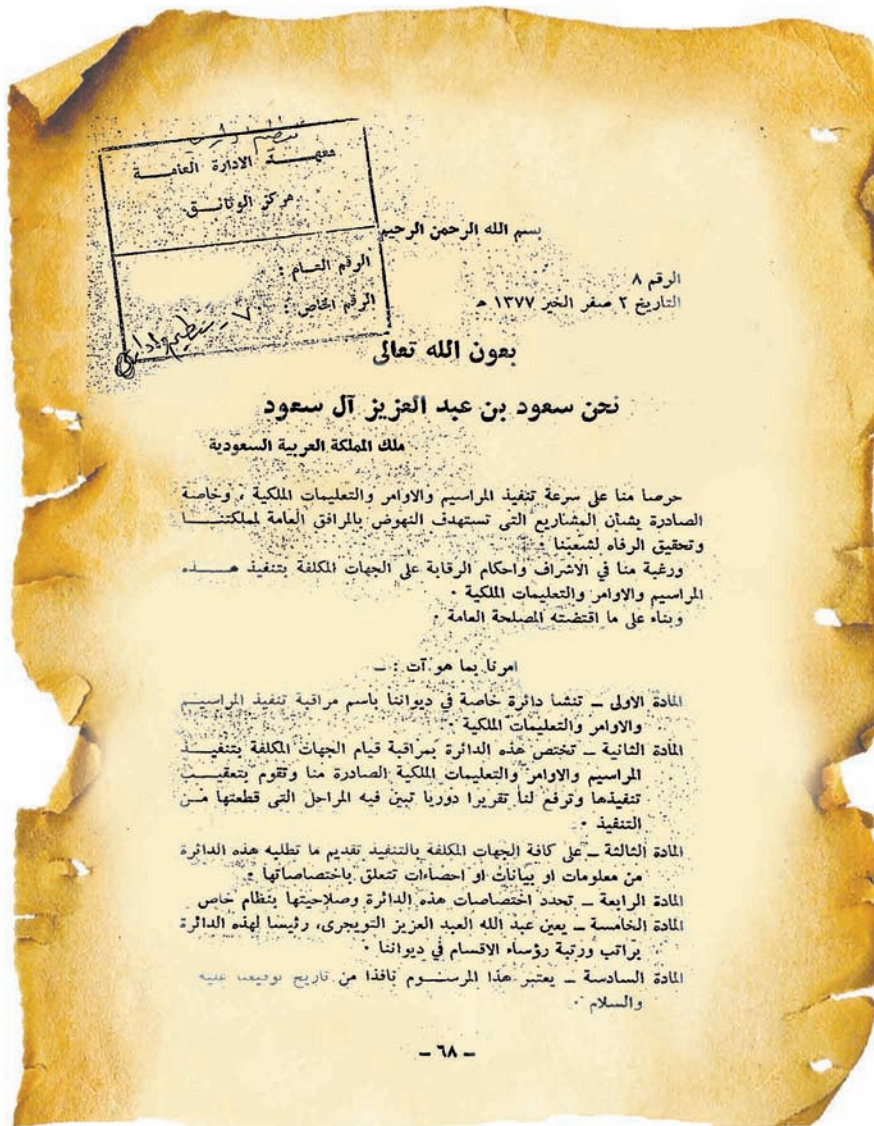 تنظيم اداري
معهد الادارة العامة
مركز الوثائق
الرقم العام :
الرقم الخاص : ٧ - تنظيم اداري
بسم الله الرحمن الرحيم
الرقم ٨
التاريخ ٢ صفر الخير ١٣٧٧ هـ
بعون الله تعالى
نحن سعود بن عبد العزيز آل سعود
ملك المملكة العربية السعودية
حرصا منا على سرعة تنفيذ المراسيم والاوامر والتعليمات الملكية ، وخاصة
الصادرة بشأن المشاريع التى تستهدف النهوض بالمرافق العامة لمملكتنـــا
وتحقيق الرفاه لشعبنا ٠
ورغبة منا في الاشراف واحكام الرقابة على الجهات المكلفة بتنفيذ هـــذه
المراسيم والاوامر والتعليمات الملكية ٠
وبناء على ما اقتضته المصلحة العامة ٠
امرنا بما هو آت : ــ
المادة الاولى ــ تنشأ دائرة خاصة في ديواننا باسم مراقبة تنفيذ المراسيـم
والاوامر والتعليمات الملكية ٠
المادة الثانية ــ تختص هذه الدائرة بمراقبة قيام الجهات المكلفة بتنفيـــذ
المراسيم والاوامر والتعليمات الملكية الصادرة منا وتقوم بتعقيـب
تنفيذها وترفع لنا تقريرا دوريا تبين فيه المراحل التى قطعتها مـن
التنفيذ ٠
المادة الثالثة ــ على كافة الجهات المكلفة بالتنفيذ تقديم ما تطلبه هذه الدائرة
من معلومات او بيانات او احصاءات تتعلق باختصاصاتها ٠
المادة الرابعة ــ تحدد اختصاصات هذه الدائرة وصلاحيتها بنظام خاص
المادة الخامسة ــ يعين عبد الله العبد العزيز التويجرى، رئيسا لهذه الدائرة
براتب ورتبة رؤساء الاقسام في ديواننا ٠
المادة السادسة ــ يعتبر هذا المرســوم نافذا من تاريخ توقيعنا عليه
والسلام ٠
ــ ٦٨ ــ